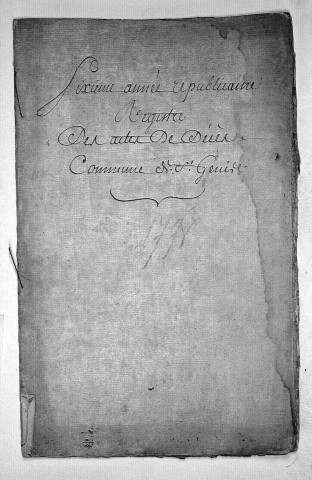 Sixieme année republicaine
Registre
Des actes De Décès
Commune de St Genis
1798